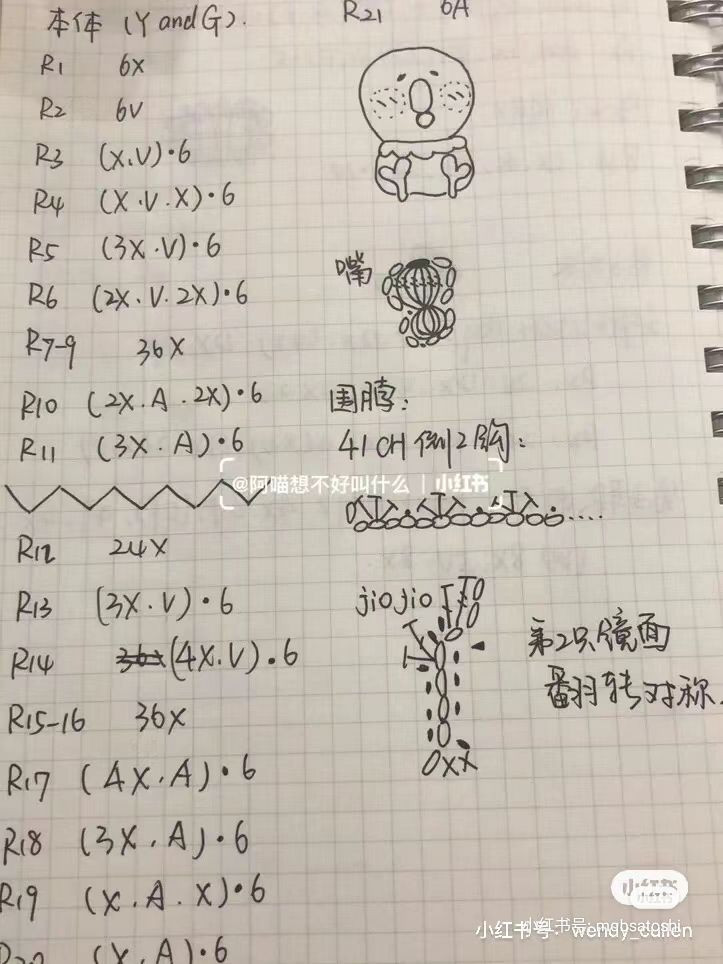 本体 (Y and G).
R1 6X
R2 6V
R3 (X.V)·6
R4 (X.V.X)·6
R5 (3X.V)·6
R6 (2X.V.2X)·6
R7-9 36X
R10 (2X.A.2X)·6
R11 (3X.A)·6
R12 24X
R13 (3X.V)·6
R14 (4X.V).6
R15-16 36X
R17 (4X.A)·6
R18 (3X.A)·6
R19 (X.A.X)·6
R20 (X.A)·6
R21 6A
嘴
围脖:
41CH 倒2钩:
jiojio
第2只镜面
翻转对称.
OXX
@阿喵想不好叫什么 | 小红书
小红书
小红书号: mgbsatoshi
小红书号: wendy_cullen